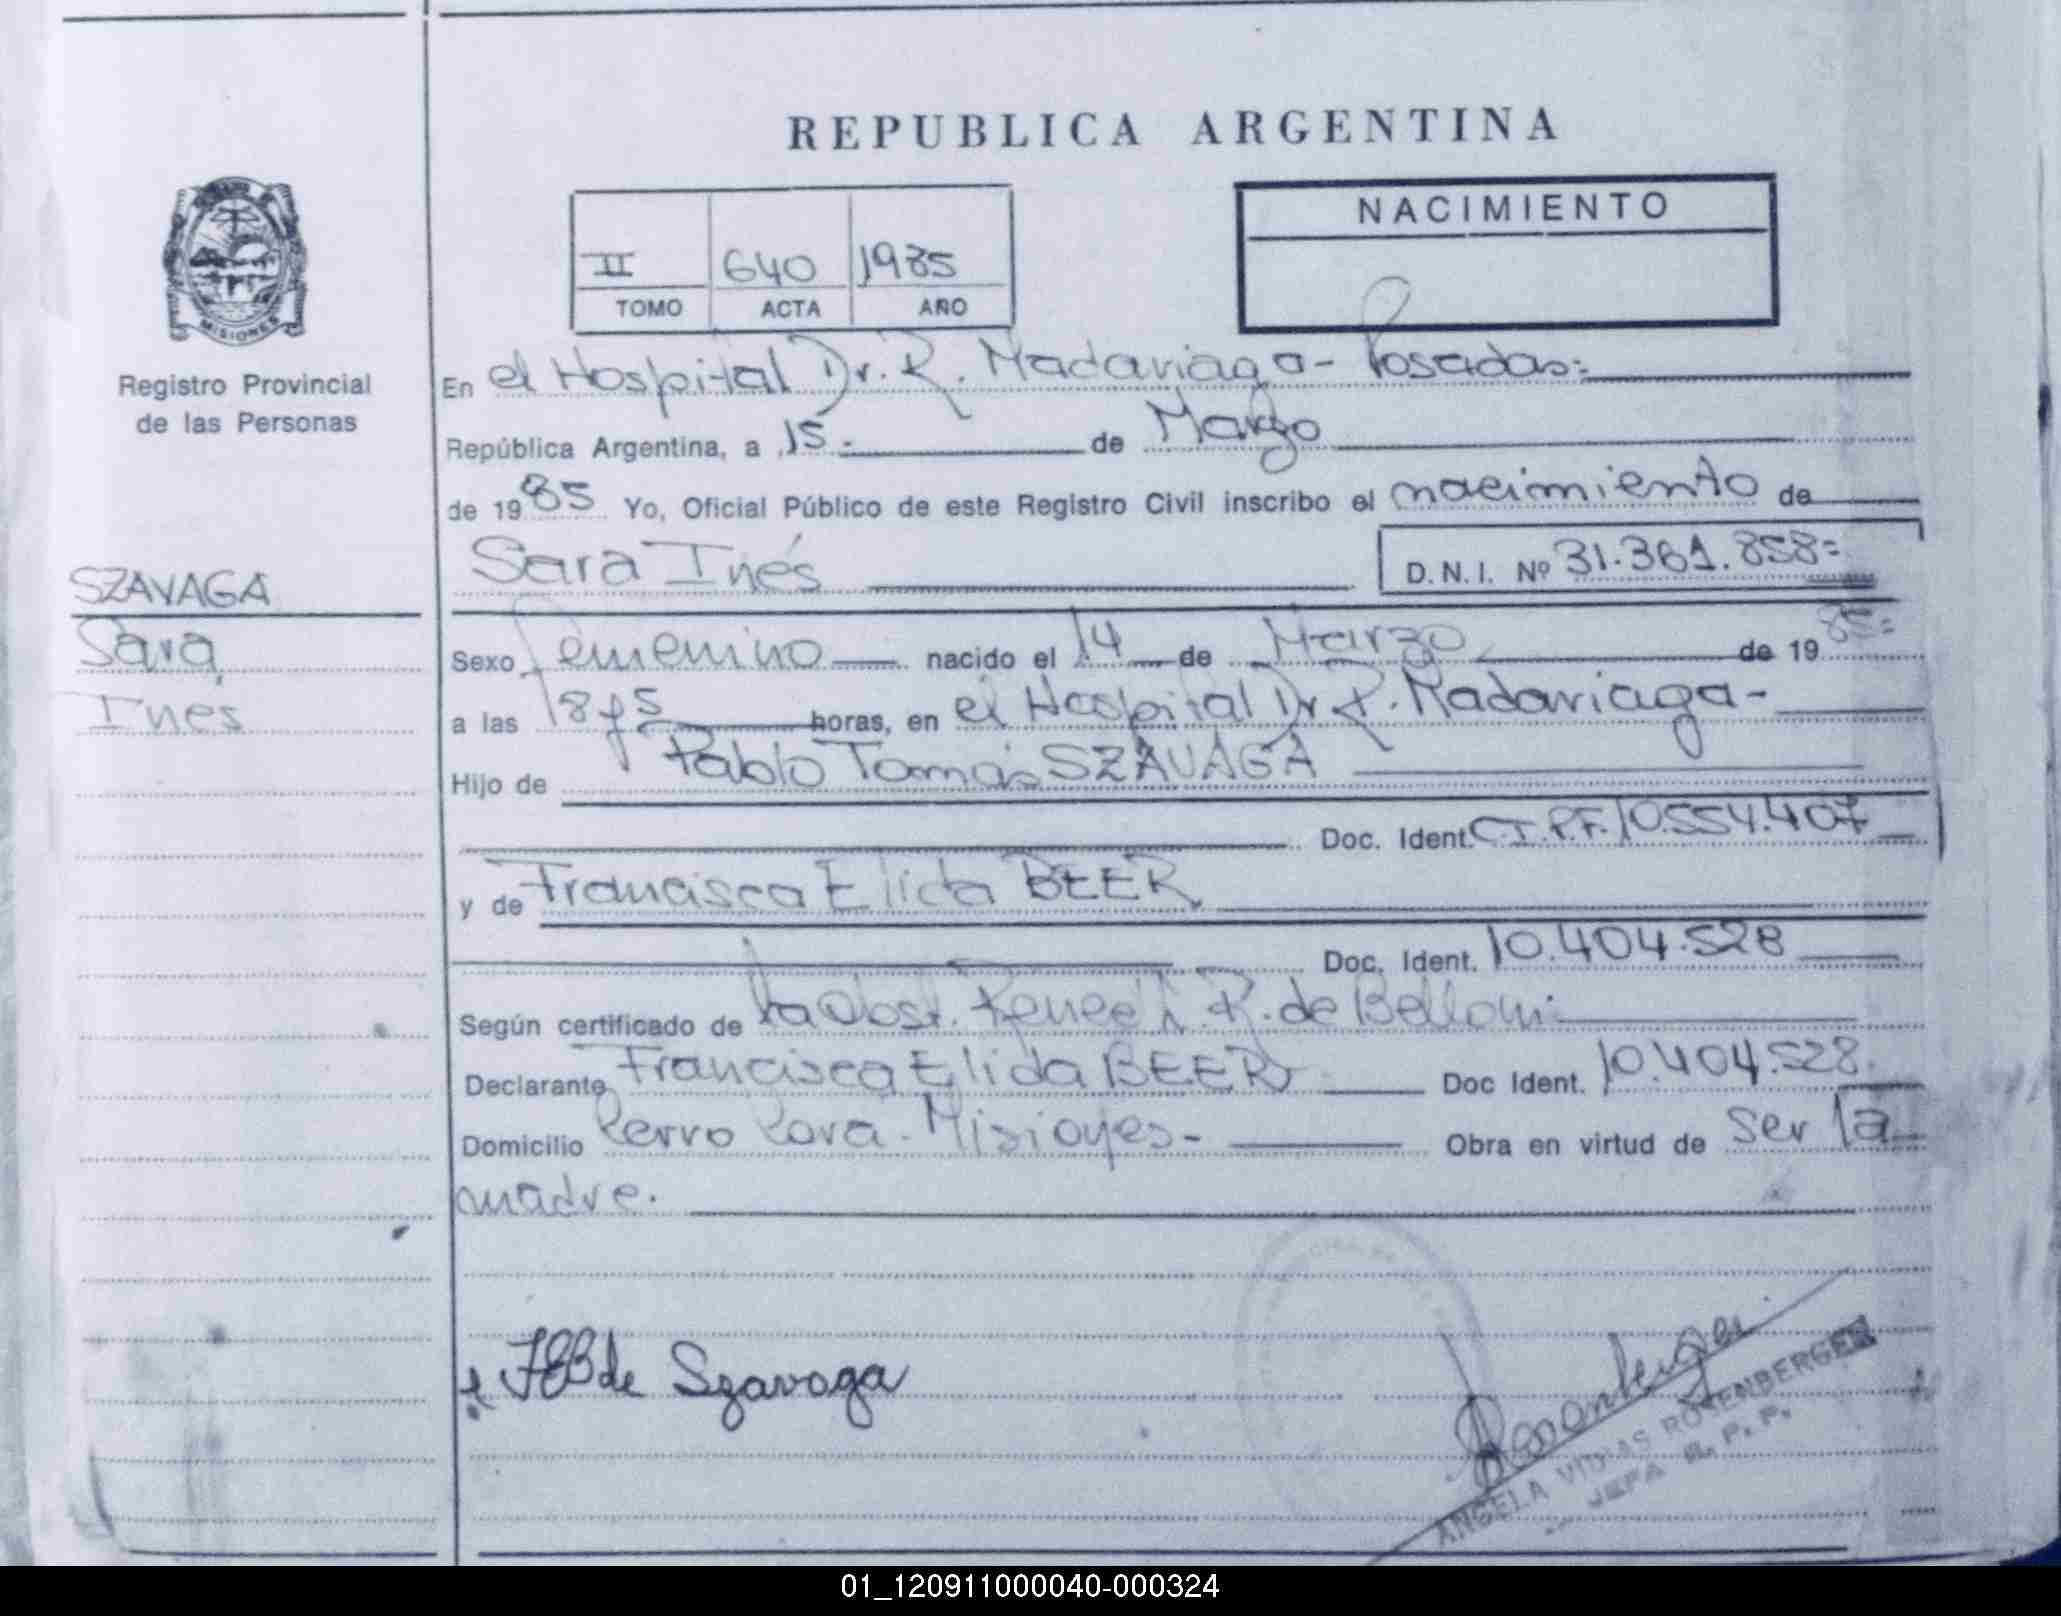 REPUBLICA ARGENTINA
MISIONES
Registro Provincial
de las Personas
II 640 1985
TOMO ACTA AÑO
NACIMIENTO
En el Hospital Dr. R. Madariaga - Posadas:
República Argentina, a 15 de Marzo
de 1985 Yo, Oficial Público de este Registro Civil inscribo el nacimiento de
SZAVAGA
Sara
Inés
Sara Inés D.N.I. Nº 31.361.858=
Sexo Femenino nacido el 14 de Marzo de 1985=
a las 18 y 5 horas, en el Hospital Dr R. Madariaga-
Hijo de Pablo Tomás SZAVAGA
Doc. Ident. C.I.P.F. 10.554.407
y de Francisca Elida BEER
Doc. Ident. 10.404.528
Según certificado de la Obst. Renee R. de Belloni
Declarante Francisca Elida BEER Doc Ident. 10.404.528.
Domicilio Cerro Corá - Misiones- Obra en virtud de ser la
madre.
FEB de Szavaga
Rosenberger
ANGELA VIDNAS ROSENBERGER
JEFA R. P. P.
01_120911000040-000324